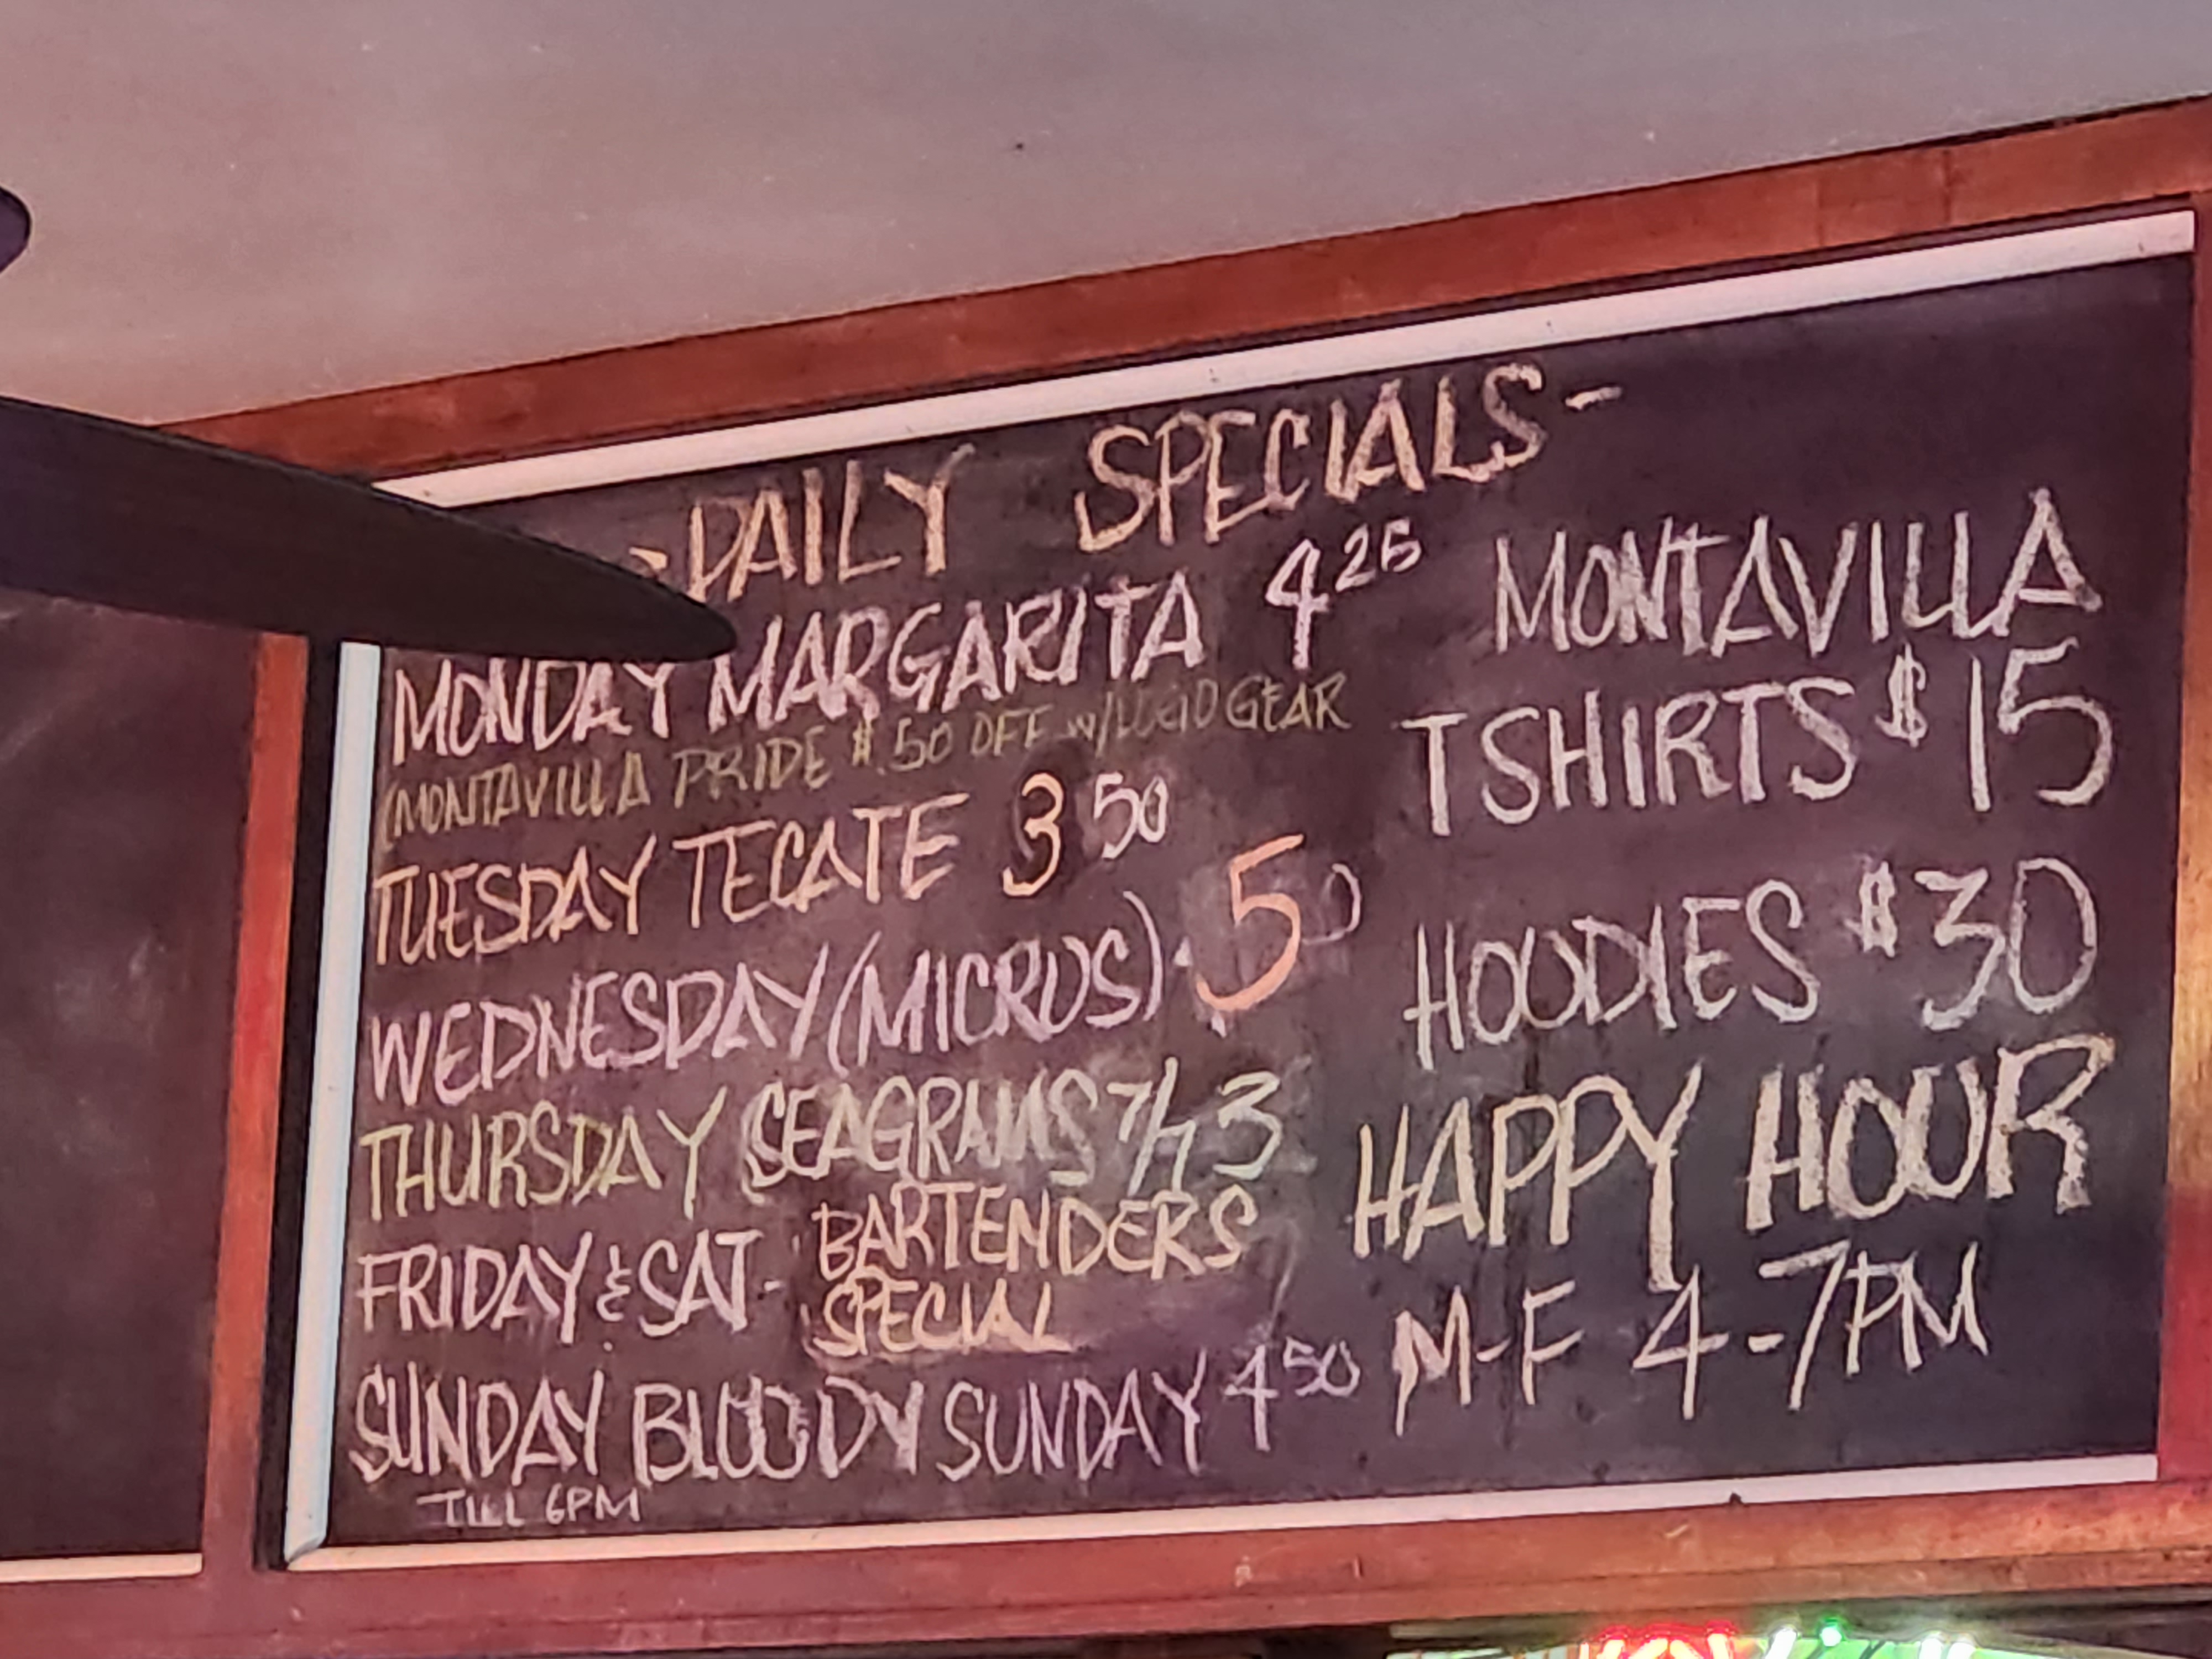 -DAILY SPECIALS-
MONDAY MARGARITA 4 25
(MONTAVILLA PRIDE $.50 OFF w/LOGO GEAR
TUESDAY TECATE 3 50
WEDNESDAY (MICROS) 5
THURSDAY SEAGRAMS 7/7 3
FRIDAY & SAT- BARTENDERS
SPECIAL
SUNDAY BLOODY SUNDAY 4 50
TILL 6PM
MONTAVILLA
TSHIRTS $15
HOODIES $30
HAPPY HOUR
M-F 4-7PM